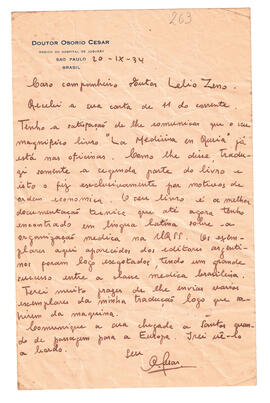 263
DOUTOR OSORIO CESAR
MEDICO DO HOSPITAL DE JUQUERY
SAO PAULO
BRASIL
20-IX-34
Caro companheiro Doutor Lelio Zeno.
Recebi a sua carta de 11 do corrente.
Tenho a satisfação de lhe comunicar que o seu
magnifico livro "La Medicina en Rusia" já
está nas oficinas. Como lhe disse tradu-
zi somente a segunda parte do livro e
isto o fiz exclusivamente por motivos de
ordem economica. O seu livro é a melhor
documentação technica que até agora tenho
encontrado em lingua latina sobre a
organização medica na URSS. Os exem-
plares aqui aparecidos dos editores argenti-
nos foram logo exgotados tendo um grande
sucesso entre a classe medica brasileira.
Terei muito prazer de lhe enviar varios
exemplares da minha tradução logo que sa-
hirem da maquina.
Comunique a sua chegada a Santos quan-
do de passagem para a Europa. Irei vê-lo
a bordo.
Seu
O. Cesar